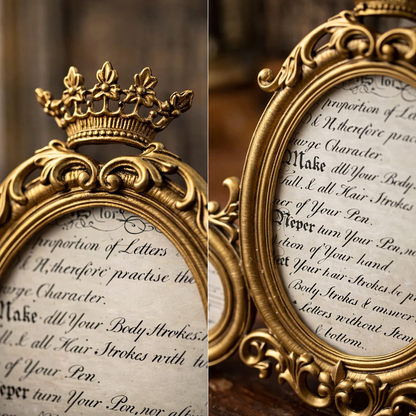 s for
proportion of Letters
N, therefore practise the
arge Character.
Make all Your Body Strokes
full, & all Hair Strokes with
of Your Pen.
Never turn Your Pen, nor
s for
proportion of Let
N, therefore prac
arge Character.
Make all Your Body
full, & all Hair Strokes
er of Your Pen.
Never turn Your Pen, no
ction of Your hand.
et Your hair Strokes be
Body Strokes & answer
Letters without
bottom.